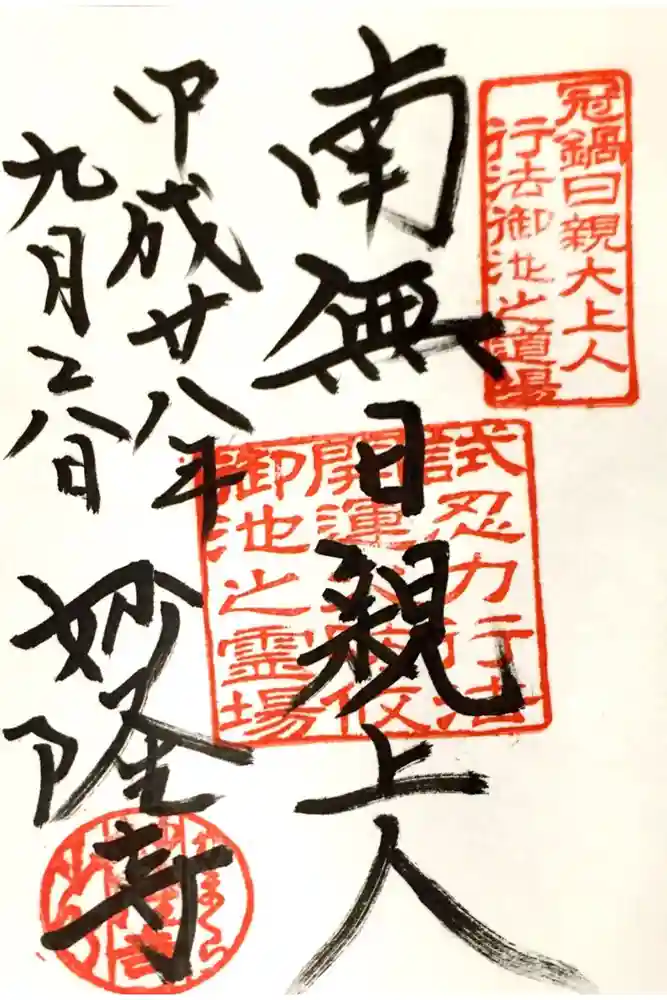 冠鍋日親大上人
行法御池之道場
南無日親上人
試忍力行法
開運
御池之霊場
平成廿八年
九月二八日
妙隆寺